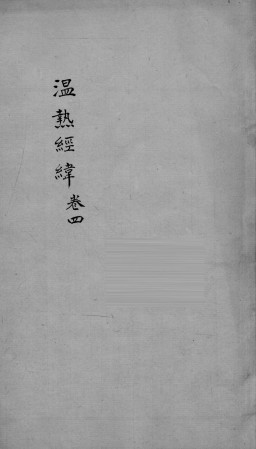 温熱經緯卷四